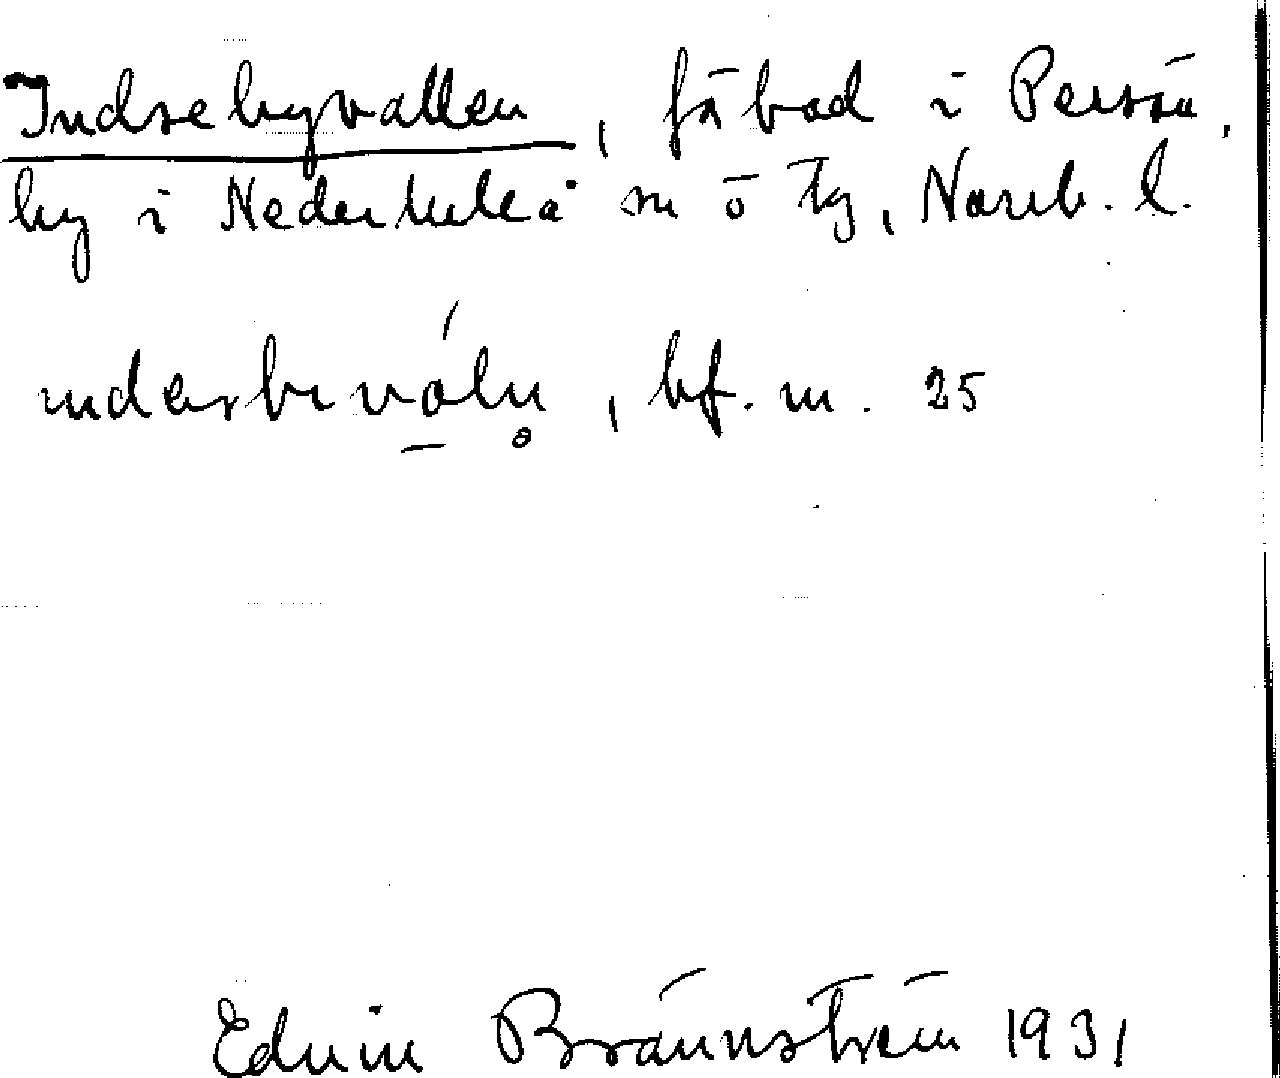 Indsebyvallen, fäbod i Persön,
by i Nederluleå sn ö tg, Norrb. l.
bf. m. 25
Edvin Brännström 1931